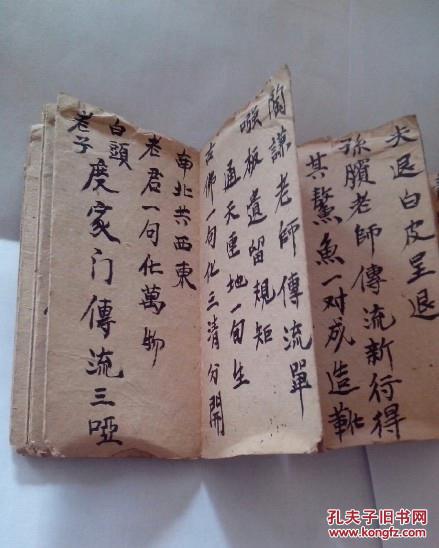 尖退白皮呈退
孫臏老師傳流新行得
其鰲魚一对成造靴
化
陶謙老師傳流單
喉板遺留規矩
通天連地一句生
古佛一句化三清分開
南北共西東
老君一句化萬物
白頭
老子
度家门傳流三啞
孔夫子旧书网
www.kongfz.com